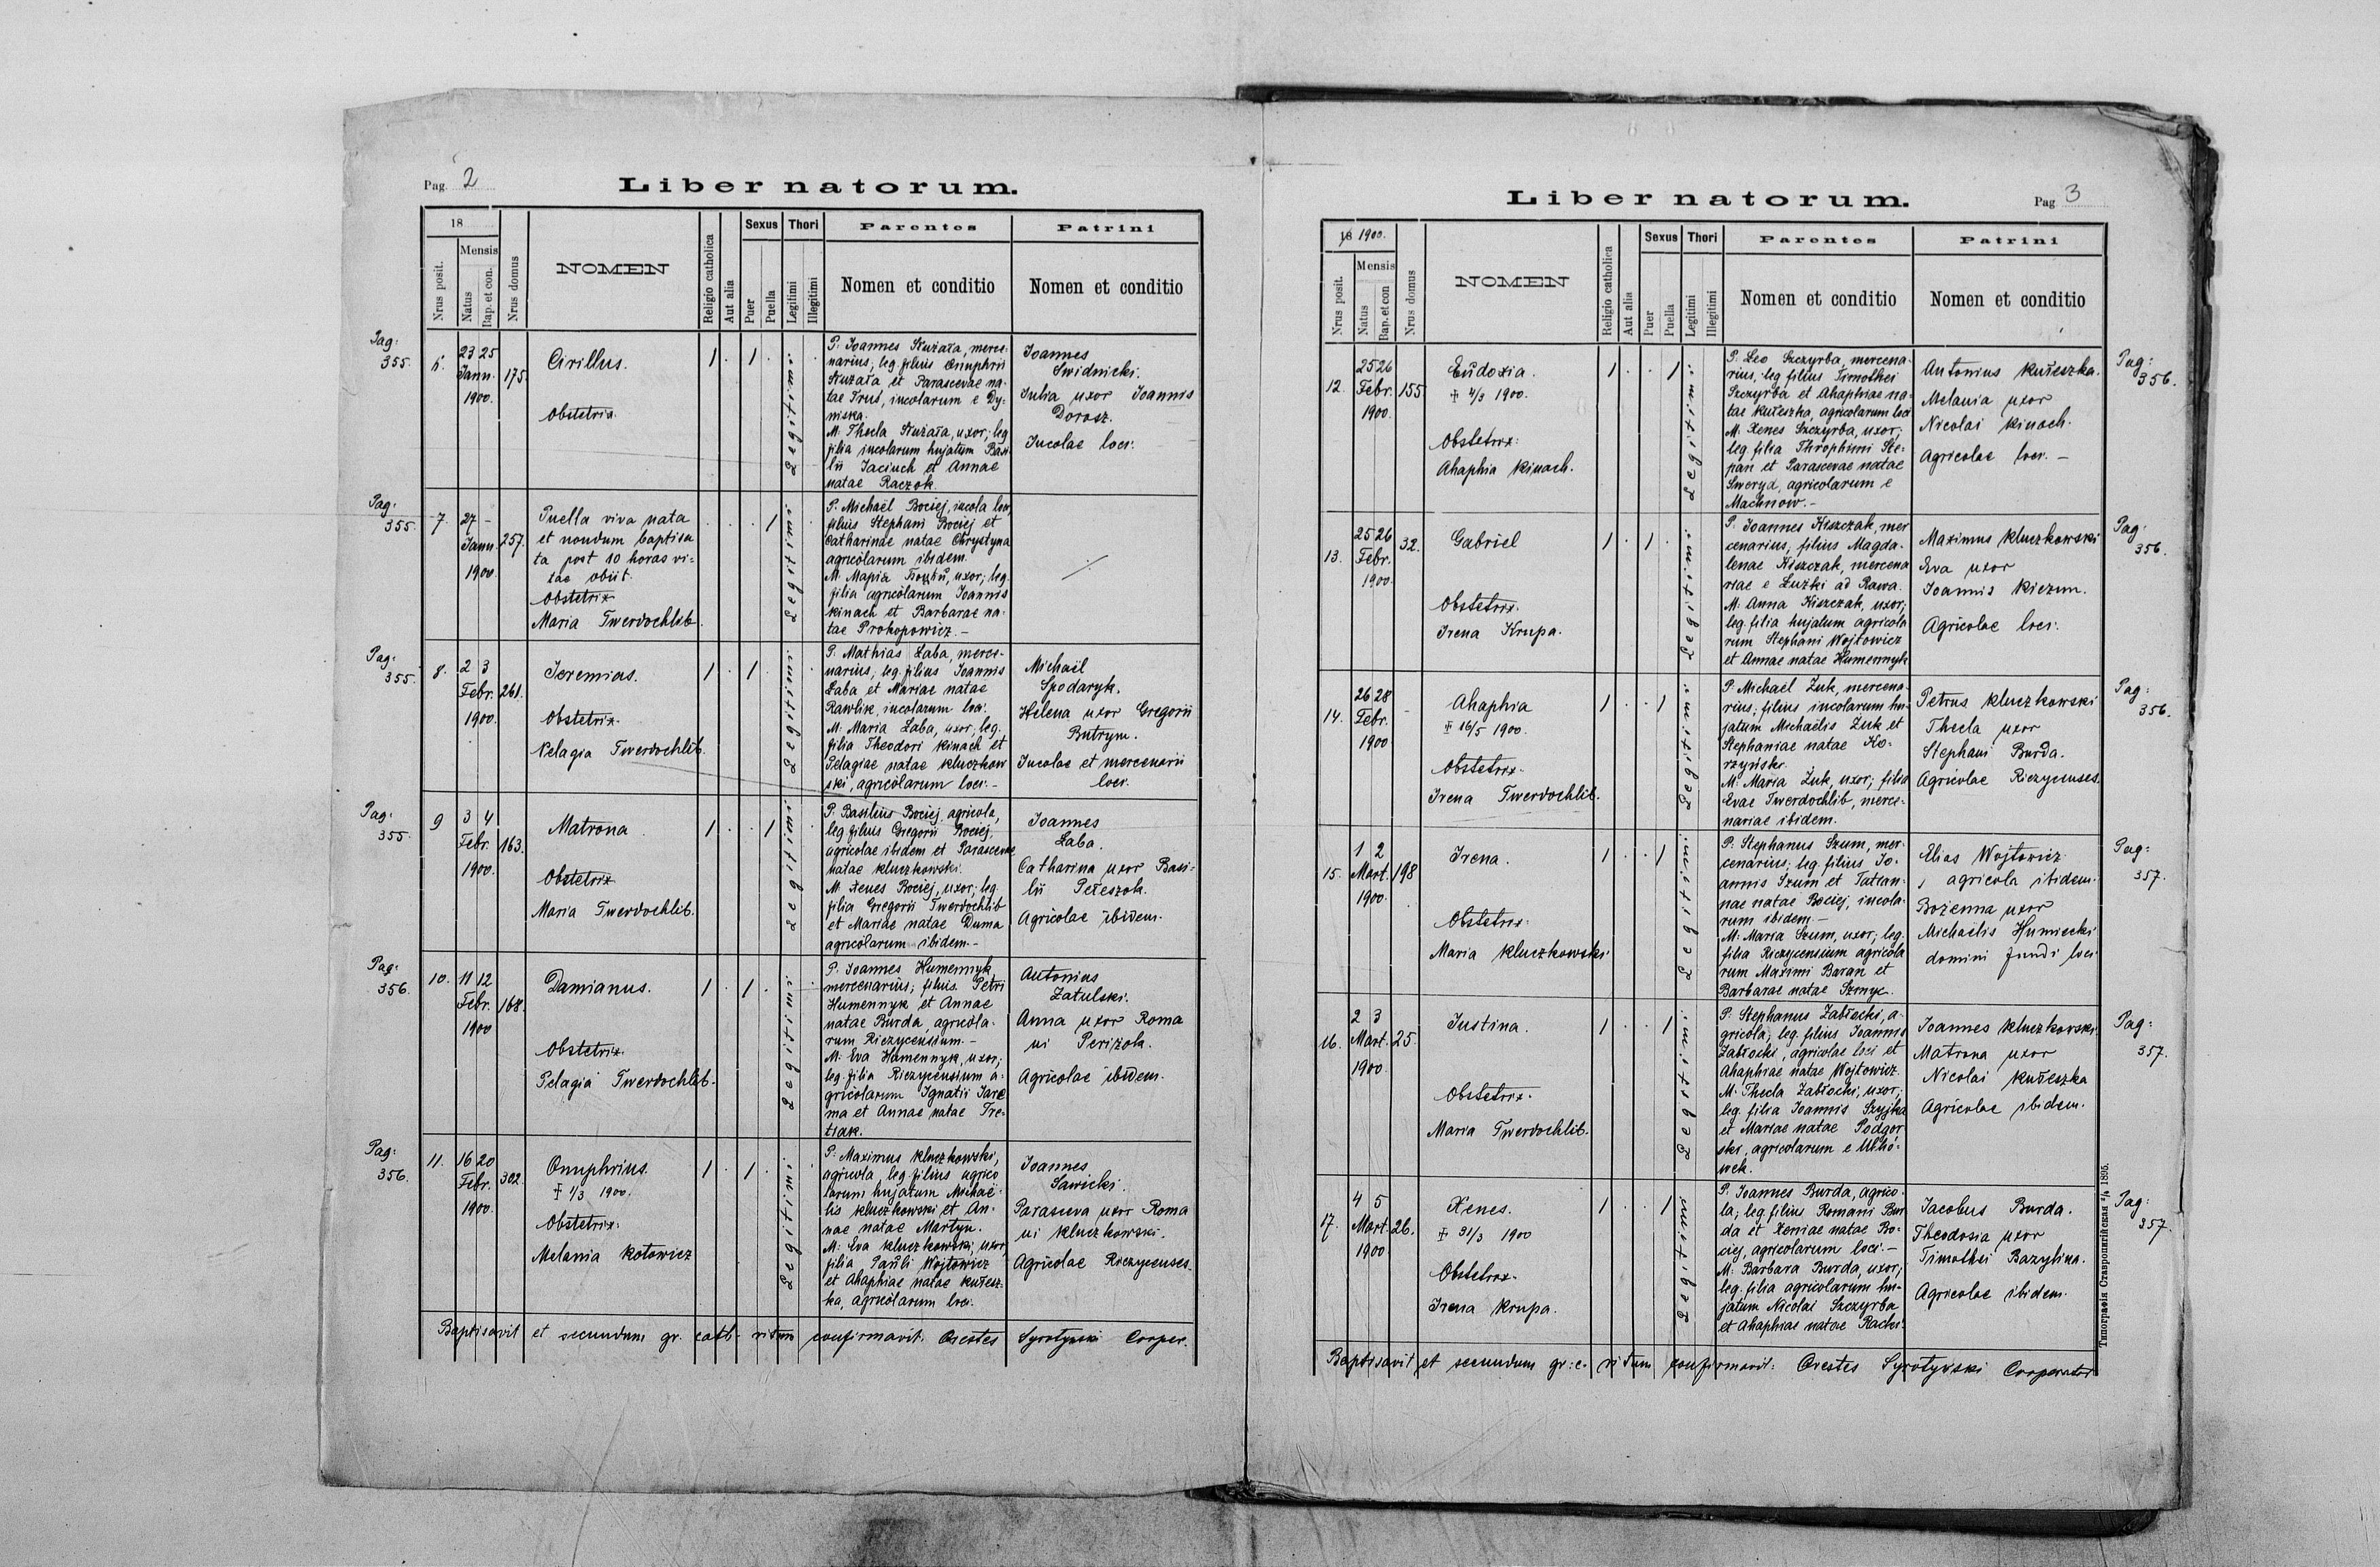 Pag. 2
Liber natorum.
18
Nrus posit.
Mensis
Natus
Bap. et con.
Nrus domus
NOMEN
Religio catholica
Aut alia
Sexus
Puer
Puella
Thori
Legitimi
Illegitimi
Parentes
Nomen et conditio
Patrini
Nomen et conditio
Pag:
355.
6.
23 25
Jann.
1900.
175.
Cirillus.
Obstetrix.
1 . 1 .
Legitimi
P: Joannes Stużała, merce-
narius; leg. filius Onuphrii
Stużała et Parascevae na-
tae Prus, incolarum e Dy-
niska.
M: Thecla Stużała, uxor; leg
filia incolarum hujatum Basi
lii Jaciuch et Annae
natae Raczok.
Joannes
Swidnicki.
Julia uxor Joannis
Dorosz.
Incolae loci.
Pag:
355.
7.
27 -
Jann.
1900.
257.
Puella viva nata
et nondum baptisa
ta post 10 horas vi-
tae obiit.
Obstetrix
Maria Twerdochlib.
. . . 1
Legitimi
P: Michaël Bociej, incola loci,
filius Stephani Bociej et
Catharinae natae Chrystyna
agricolarum ibidem.
M. Марія Боцѣй, uxor; leg.
filia agricolarum Joannis
Kinach et Barbarae na-
tae Prokopowicz. -
Pag:
355.
8.
2 3
Febr.
1900.
261.
Jeremias.
Obstetrix.
Pelagia Twerdochlib.
1 . 1 .
Legitimi
P. Mathias Łaba, merce-
narius, leg. filius Joannis
Łaba et Mariae natae
Rawlik, incolarum loci.
M. Maria Łaba, uxor; leg.
filia Theodori Kinach et
Pelagiae natae Kluczkow
ski, agricolarum loci. -
Michaël
Spodaryk.
Helena uxor Gregorii
Butrym.
Incolae et mercenarii
loci.
Pag:
355.
9
3 4
Febr.
1900.
163.
Matrona
Obstetrix
Maria Twerdochlib.
1 . . 1
Legitimi
P. Basilius Bociej, agricola,
leg. filius Gregorii Bociej,
agricolae ibidem et Parascevae
natae Kluczkowski.
M. Xenes Bociej, uxor; leg.
filia Gregorii Twerdochlib
et Mariae natae Duma
agricolarum ibidem. -
Joannes
Łaba.
Catharina uxor Basi-
lii Pereszok.
Agricolae ibidem.
Pag:
356.
10.
11 12
Febr.
1900
168.
Damianus.
Obstetrix.
Pelagia Twerdochlib.
1 . 1 .
Legitimi
P. Joannes Humennyk
mercenarius; filius Petri
Humennyk et Annae
natae Burda, agricola-
rum Rieczycensium. -
M: Eva Humennyk, uxor;
leg. filia Rieczycensium a-
gricolarum Ignatii Jare
ma et Annae natae Tre-
tiak.
Antonius
Zatulski.
Anna uxor Roma
ni Perizok.
Agricolae ibidem.
Pag:
356.
11.
16 20
Febr.
1900.
302.
Onuphrius.
‡ 1/3 1900.
Obstetrix:
Melania Kotowicz
1 . 1 .
Legitimi
P: Maximus Kluczkowski,
agricola, leg. filius agrico
larum hujatum Michaë-
lis Kluczkowski et An-
nae natae Martyn.
M: Eva Kluczkowski, uxor,
filia Pauli Wojtowicz
et Ahaphiae natae Kułesz-
ka, agricolarum loci.
Joannes
Sawicki.
Parasceva uxor Roma
ni Kluczkowski.
Agricolae Rieczycenses.
Baptisavit et secundum gr. cath. ritum confirmavit: Orestes Syrotyński Cooper.
Liber natorum.
Pag 3
18 1900.
Nrus posit.
Mensis
Natus
Bap. et con
Nrus domus
NOMEN
Religio catholica
Aut alia
Sexus
Puer
Puella
Thori
Legitimi
Illegitimi
Parentes
Nomen et conditio
Patrini
Nomen et conditio
12.
25 26
Febr.
1900.
155.
Eudoxia.
‡ 4/3 1900.
Obstetrix:
Ahaphia Kinach.
1 . . 1
Legitimi
P: Leo Szczyrba, mercena-
rius, leg. filius Timothei
Szczyrba et Ahaphiae na-
tae Kułeszka, agricolarum loci
M: Xenes Szczyrba, uxor;
leg. filia Throphimi Ste-
pan et Parascevae natae
Sweryd, agricolarum e
Machnow. -
Antonius Kułeszka.
Melania uxor
Nicolai Kinach.
Agricolae loci. -
Pag:
356.
13.
25 26
Febr.
1900.
32.
Gabriel
Obstetrix.
Irena Krupa.
1 . 1 .
Legitimi
P: Joannes Kiszczak, mer
cenarius, filius Magda-
lenae Kiszczak, mercena
riae e Łużki ad Rawa.
M: Anna Kiszczak, uxor;
leg. filia hujatum agricola
rum Stephani Wojtowicz
et Annae natae Humennyk
Maximus Kluczkowski
Eva uxor
Joannis Kiczun.
Agricolae loci.
Pag:
356.
14.
26 28
Febr.
1900
-
Ahaphia
‡ 16/5 1900.
Obstetrix.
Irena Twerdochlib.
1 . . 1
Legitimi
P: Michaël Żuk, mercena-
rius; filius incolarum hu-
jatum Michaëlis Żuk et
Stephaniae natae Ko-
rzyński.
M: Maria Żuk, uxor; filia
Evae Twerdochlib, merce-
nariae ibidem.
Petrus Kluczkowski
Thecla uxor
Stephani Burda.
Agricolae Rieczycenses.
Pag:
356.
15.
1 2
Mart.
1900.
198
Irena.
Obstetrix:
Maria Kluczkowski
1 . . 1
Legitimi
P. Stephanus Szum, mer-
cenarius; leg. filius Jo-
annis Szum et Tatian-
nae natae Bociej, incola-
rum ibidem. -
M: Maria Szum, uxor; leg.
filia Rieczycensium agricola
rum Maximi Baran et
Barbarae natae Szmyc.
Elias Wojtowicz
agricola ibidem.
Bożenna uxor
Michaëlis Humiecki
domini fundi loci
Pag:
357.
16.
2 3
Mart.
1900.
25.
Justina.
Obstetrix.
Maria Twerdochlib.
1 . . 1
Legitimi
P: Stephanus Zabłocki, a-
gricola; leg. filius Joannis
Zabłocki, agricolae loci et
Ahaphiae natae Wojtowicz.
M: Thecla Zabłocki, uxor;
leg. filia Joannis Szyjka
et Mariae natae Podgor
ski, agricolarum e Uhnó-
wek.
Joannes Kluczkowski.
Matrona uxor
Nicolai Kułeszka
Agricolae ibidem.
Pag:
357.
17.
4 5
Mart.
1900
26.
Xenes.
‡ 31/3 1900
Obstetrix.
Irena Krupa.
1 . . 1
Legitimi
P. Joannes Burda, agrico-
la; leg. filius Romani Bur
da et Xeniae natae Bo-
ciej, agricolarum loci. -
M. Barbara Burda, uxor;
leg. filia agricolarum hu-
jatum Nicolai Szczyrba
et Ahaphiae natae
Jacobus Burda.
Theodosia uxor
Timothei Bazylina.
Agricolae ibidem.
Pag:
357.
Baptisavit et secundum gr: c. ritum confirmavit: Orestes Syrotyński Cooperator
Типографія Ставропигійская 1895.